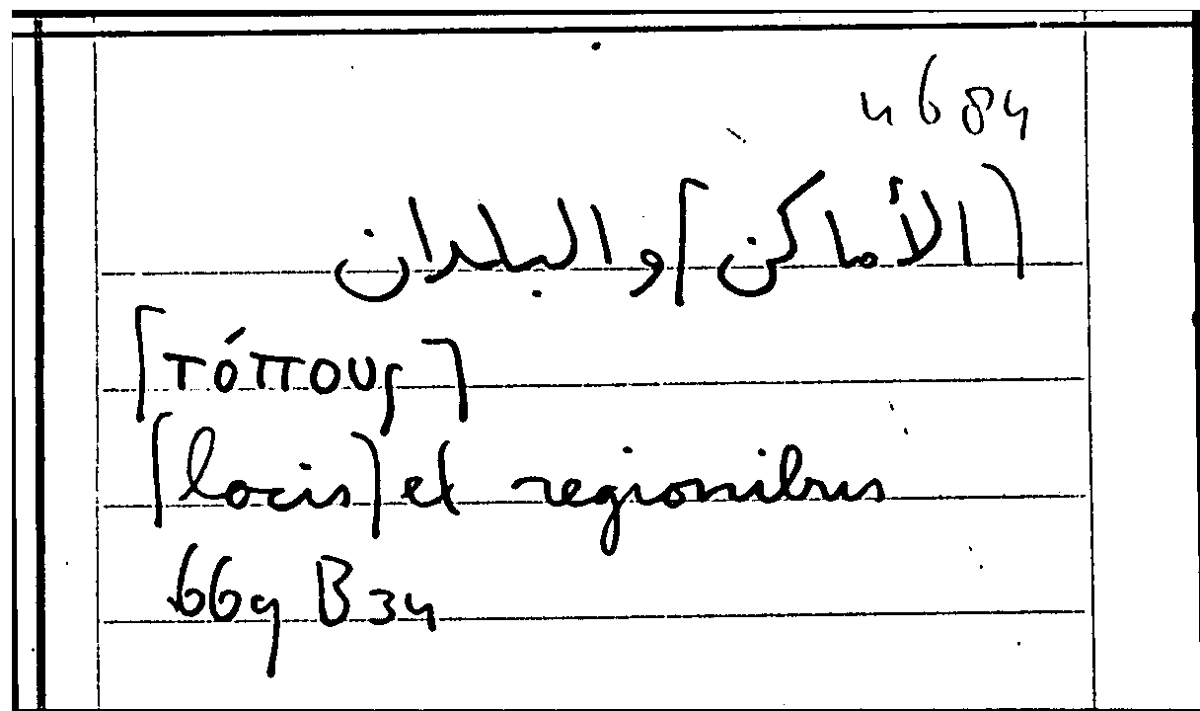 4684
[الأماكن] والبلدان
[τόππους]
[locis] et regionibus
669 B 34